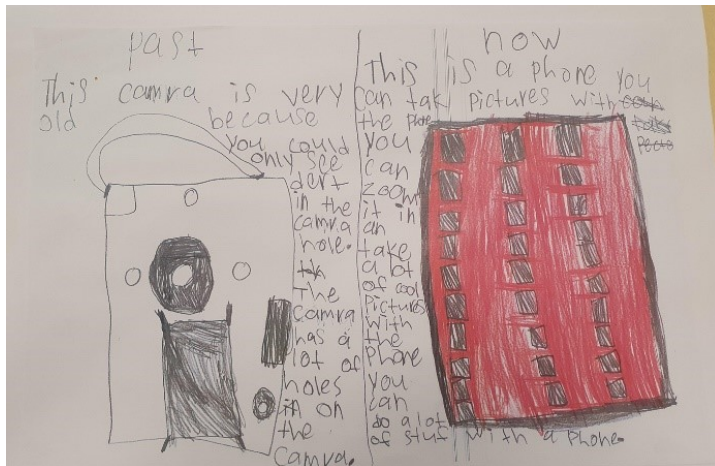 past
This camra is very
old because
you could
only see
dert
in the
camra
hole.
The
Camra
has a
lot of
holes
on
the
Camra.
now
This is a phone you
can tak pictures with
the phone
you
can
zoom
it in
an
take
a lot
of cool
Pictures
with
the
Phone
you
can
do a lot
of stuf with a phone.